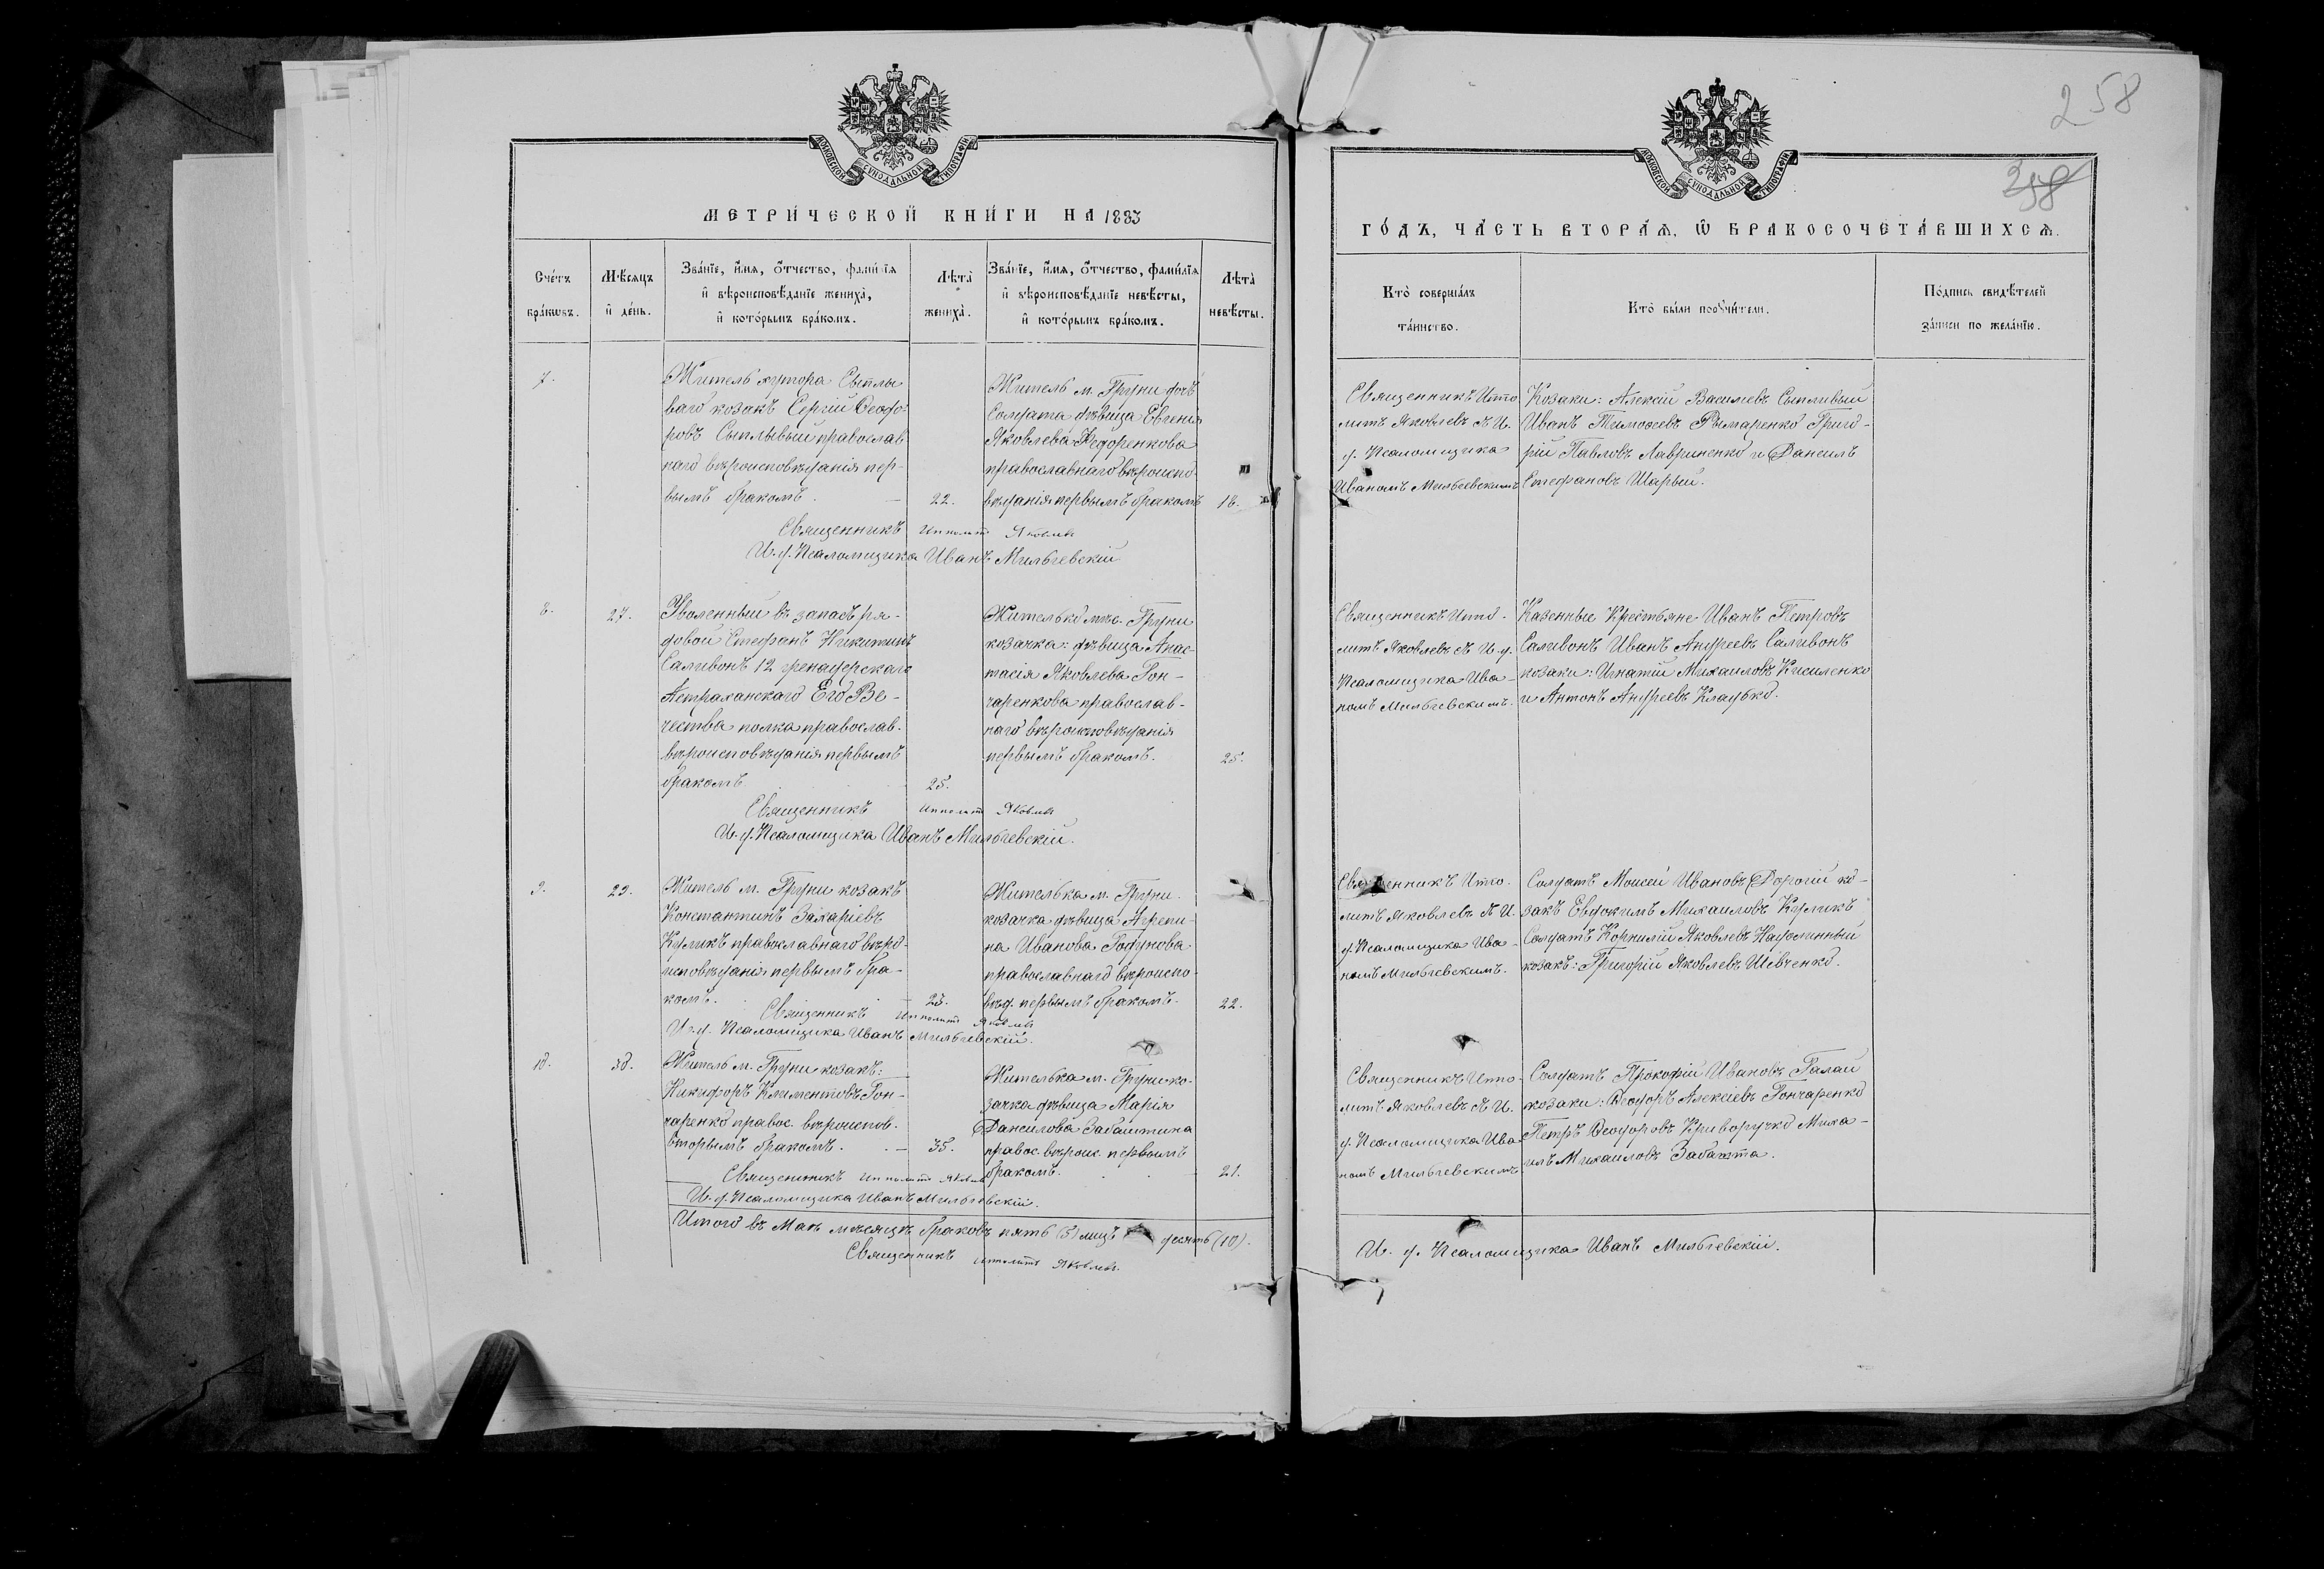 258
258
МОСКОВСКОЙ СѴНОДАЛЬНОЙ ТИПОГРАФІИ
МЕТРИ́ЧЕСКОЙ КНИ́ГИ НА 1883
Сче́тъ бра́кѡвъ.
Мѣ́сяцъ и҆ де́нь.
Зва́нїе, и҆́мя, ѻ҆́тчество, фами́лїя
и҆ вѣроисповѣ́данїе жениха̀,
и҆ кото́рымъ бра́комъ.
Лѣта̀
жениха̀.
Зва́нїе, и҆́мя, ѻ҆́тчество, фами́лїя
и҆ вѣроисповѣ́данїе невѣ́сты,
и҆ кото́рымъ бра́комъ.
Лѣта̀
невѣ́сты.
7.
Житель хутора Сыплы
ваго козакъ Сергій Ѳеодо-
ровъ Сыплывый православ
наго вѣроисповѣданія пер-
вымъ бракомъ. 22.
Житель м. Груни дочь
Солдата дѣвица Евгенія
Яковлева Федоренкова
православнаго вѣроиспо-
вѣданія первымъ бракомъ 18.
Священникъ Ипполитъ Яковлевъ
И. д. Псаломщика Иванъ Мильгевскій
8. 27.
Уволенный въ запасъ ря-
довой Стефанъ Никитинъ
Саливонъ 12 гренадерскаго
Астраханскаго Его Ве-
чества полка православ.
вѣроисповѣданія первымъ
бракомъ 25.
Жителько мѣс. Груни
козачка: дѣвица Анас-
тасія Яковлева Гон-
чаренкова православ-
наго вѣроисповѣданія
первымъ бракомъ. 25.
Священникъ Ипполитъ Яковлевъ
И. д. Псаломщика Иванъ Мильгевскій.
9. 29.
Житель м. Груни козакъ
Константинъ Захаріевъ
Куликъ православнаго вѣро-
исповѣданія первымъ бра-
комъ. 23.
Жителька м. Груни
козачка дѣвица Агрепи-
на Иванова Годунова
православнаго вѣроиспо-
вѣд. первымъ бракомъ. 22.
Священникъ Ипполитъ Яковлевъ
И. д. Псаломщика Иванъ Мильгевскій.
10. 30.
Житель м. Груни козакъ:
Никифоръ Климентовъ Гон-
чаренко правос. вѣроиспов.
вторымъ бракомъ. 35.
Жителька м. Груни ко-
зачка дѣвица Марія
Даніилова Забаштина
правос. вѣроис. первымъ
бракомъ. 21.
Священникъ Ипполитъ Яковлевъ
И. д. Псаломщика Иванъ Мильгевскій.
Итого въ Маѣ мѣсяцѣ браковъ пять (5) лицъ десять (10).
Священникъ Ипполитъ Яковлевъ.
МОСКОВСКОЙ СѴНОДАЛЬНОЙ ТИПОГРАФІИ
ГО́ДЪ, ЧА́СТЬ ВТОРА́Я, Ѡ҆ БРАКОСОЧЕТА́ВШИХСЯ.
Кто̀ соверша́лъ
та́инство.
Кто̀ бы́ли порꙋчи́тели.
По́дпись свидѣ́телей
за́писи по жела́нїю.
Священникъ Иппо
литъ Яковлевъ съ И.
д. Псаломщика
Иваномъ Мильгевскимъ
Козаки: Алексій Василіевъ Сыпливый
Иванъ Тимоѳеевъ Рымаренко Григо-
рій Павловъ Лавриненко и Даніилъ
Стефановъ Шарый.
Священникъ Иппо-
литъ Яковлевъ съ И. д.
Псаломщика Ива-
номъ Мильгевскимъ.
Казенные Крестьяне Иванъ Петровъ
Саливонъ Иванъ Андреевъ Саливонъ
козаки: Игнатій Михаиловъ Кисиленко
и Антонъ Андреевъ Кладько.
Священникъ Иппо-
литъ Яковлевъ съ И.
д. Псаломщика Ива-
номъ Мильгевскимъ.
Солдатъ Моисей Ивановъ Дорогій ко-
закъ Евдокимъ Михаиловъ Куликъ
Солдатъ Корнилій Яковлевъ Надолинный
козакъ: Григорій Яковлевъ Шевченко.
Священникъ Иппо-
литъ Яковлевъ съ И.
д. Псаломщика Ива
номъ Мильгевскимъ
Солдатъ Прокофій Ивановъ Галай
козаки: Ѳеодоръ Алексіевъ Гончаренко
Петръ Ѳеодоровъ Криворучко Миха-
илъ Михаиловъ Забашта.
И. д. Псаломщика Иванъ Мильгевскій.